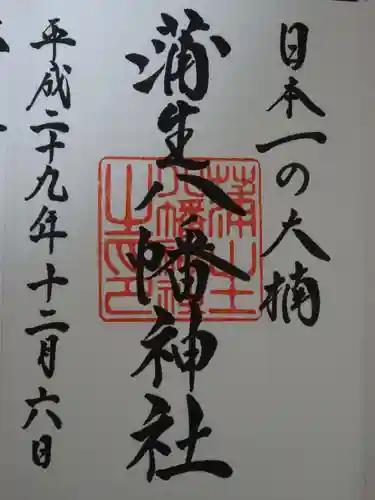 日本一の大楠
蒲生八幡神社
蒲生八幡神社之印
平成二十九年十二月六日